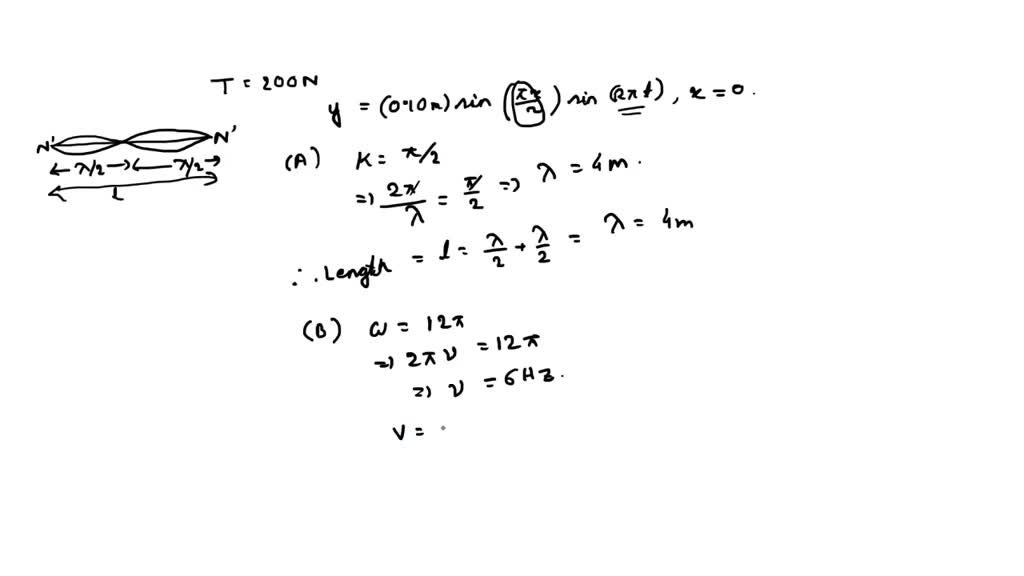 T = 200N
y = (0.10m) sin (πx/2) sin (12πt), x = 0.
N' N'
← λ/2 → ← λ/2 →
L
(A) K = π/2
=> 2π/λ = π/2 => λ = 4m.
∴ Length = l = λ/2 + λ/2 = λ = 4m
(B) ω = 12π
=> 2πν = 12π
=> ν = 6Hz.
V =